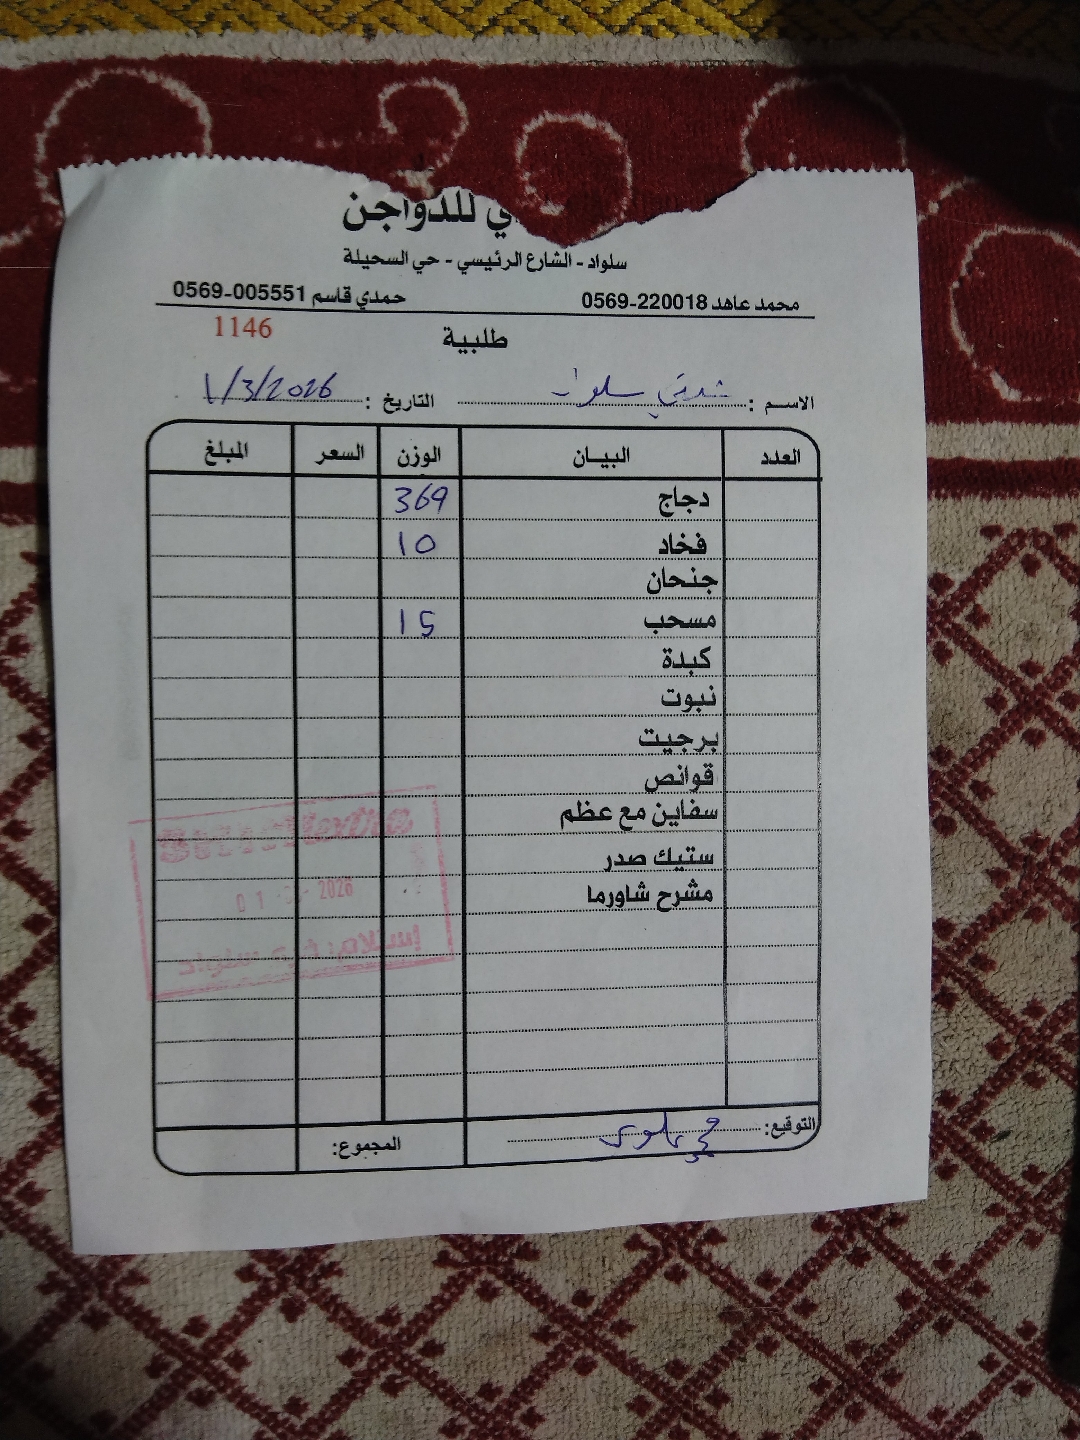 ي للدواجن
سلواد - الشارع الرئيسي - حي السحيلة
محمد عاهد 0569-220018 حمدي قاسم 0569-005551
1146
طلبية
الاسم : سلواد التاريخ : 1/3/2026
العدد البيان الوزن السعر المبلغ
دجاج 369
فخاد 10
جنحان
مسحب 15
كبدة
نبوت
برجيت
قوانص
سفاين مع عظم
ستيك صدر
مشرح شاورما
01 2026
إستلام فرع سلواد
التوقيع:
المجموع: